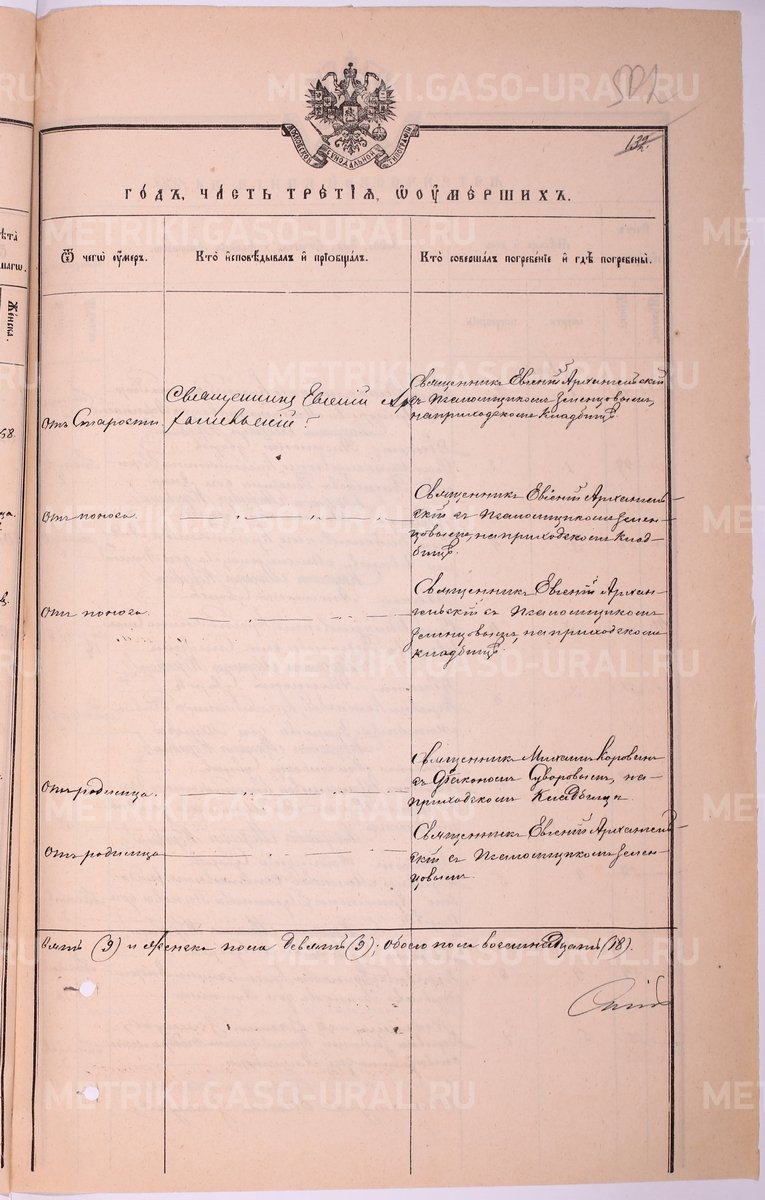 METRIKI.GASO-URAL.RU
132.
МОСКОВСКОЙ СѴНОДАЛЬНОЙ ТИПОГРАФІИ
ГОДЪ, ЧАСТЬ ТРЕТІЯ, Ѿ ОУМЕРШИХЪ.
Ѿ чегѡ оумеръ.
Кто исповѣдывалъ и пріобщалъ.
Кто совершалъ погребеніе и гдѣ погребены.
Женска.
68.
Отъ старости.
Священникъ Евгеній Ар
хангельскій.
Священникъ Евгеній Архангельскій
съ Псаломщикомъ Зеленцовымъ,
на приходскомъ кладбищѣ.
Отъ поноса.
Священникъ Евгеній Архангель-
скій съ Псаломщикомъ Зелен-
цовымъ, на приходскомъ клад-
бищѣ.
Отъ поноса.
Священникъ Евгеній Архан-
гельскій съ Псаломщикомъ
Зеленцовымъ, на приходскомъ
кладбищѣ.
Отъ родимца.
Священникъ Михаилъ Коровинъ
съ Діакономъ Суворовымъ, на
приходскомъ кладбищѣ.
Отъ родимца
Священникъ Евгеній Архангель-
скій съ Псаломщикомъ Зелен-
цовымъ.
(9) и женска пола девять (9); обоего пола восемнадцать (18).